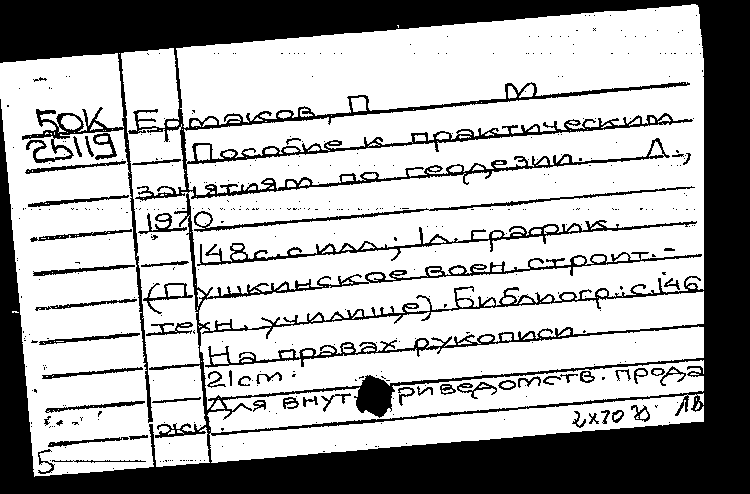 50К Ермаков, П М
25119 Пособие к практическим
занятиям по геодезии. Л.,
1970.
148с. с илл.; 1л. график.
(Пушкинское воен. строит.-
техн. училище). Библиогр.: с.146
На правах рукописи.
21cm.
Для внут риведомств. прода
жи.
5